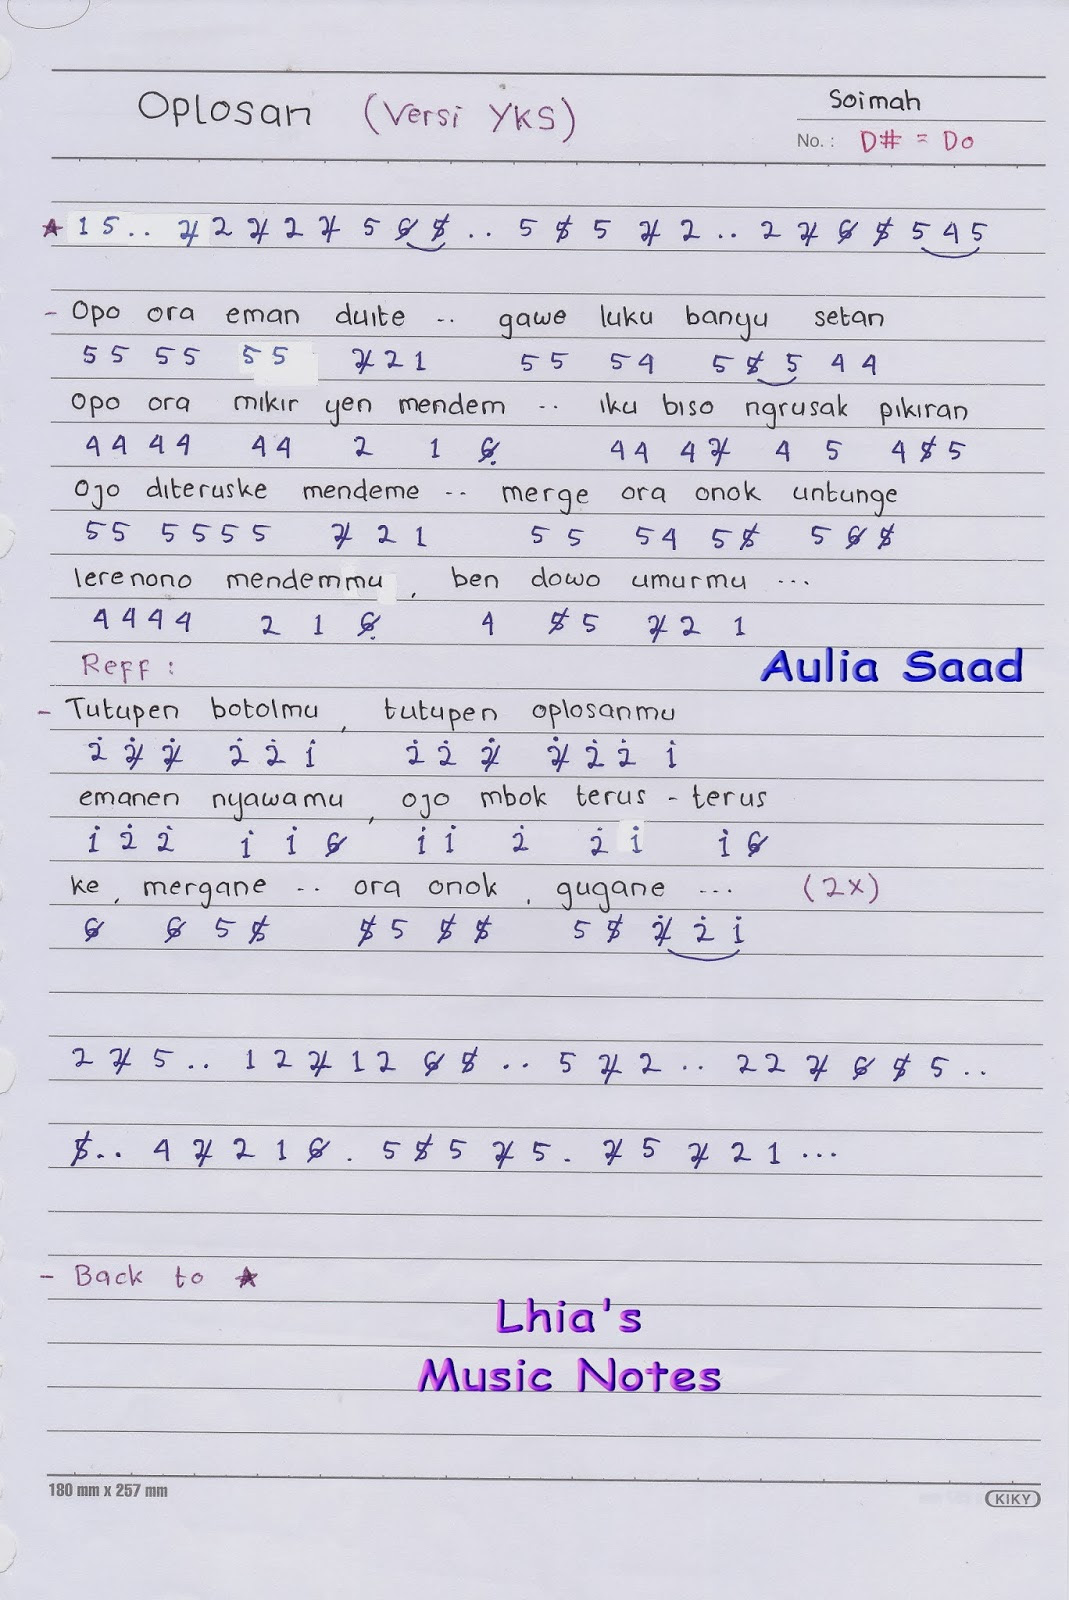 Oplosan (Versi YKS)
Soimah
No. : D# = Do
★ 1 5 . . 2̸ 2 2̸ 2 2̸ 5 6̸ 5̸ . . 5 5̸ 5 2̸ 2 . . 2 2̸ 6̸ 5̸ 5 4 5
- Opo ora eman duite .. gawe luku banyu setan
5 5 5 5 5 5 2̸ 2 1 5 5 5 4 5 5̸ 5 4 4
Opo ora mikir yen mendem .. iku biso ngrusak pikiran
4 4 4 4 4 4 2 1 6̸̣ 4 4 4 2̸ 4 5 4 5̸ 5
Ojo diteruske mendeme .. merge ora onok untunge
5 5 5 5 5 5 2̸ 2 1 5 5 5 4 5 5̸ 5 6̸ 5̸
lerenono mendemmu , ben dowo umurmu ...
4 4 4 4 2 1 6̸̣ 4 5̸ 5 2̸ 2 1
Reff :
Aulia Saad
- Tutupen botolmu , tutupen oplosanmu
2̇ 2̸̇ 2̸̇ 2̇ 2̇ 1̇ 2̇ 2̇ 2̸̇ 2̸̇ 2̇ 2̇ 1̇
emanen nyawamu , ojo mbok terus - terus
1̇ 2̇ 2̇ 1̇ 1̇ 6̸ 1̇ 1̇ 2̇ 2̇ 1̇ 1̇ 6̸
ke , mergane .. ora onok , gugane ... (2x)
6̸ 6̸ 5 5̸ 5̸ 5 5̸ 5̸ 5 5̸ 2̸̇ 2̇ 1̇
2 2̸ 5 . . 1 2 2̸ 1 2 6̸ 5̸ . . 5 2̸ 2 . . 2 2 2̸ 6̸ 5̸ 5 . .
5̸ . . 4 2̸ 2 1 6̸ . 5 5̸ 5 2̸ 5 . 2̸ 5 2̸ 2 1 ...
- Back to ★
Lhia's
Music Notes
180 mm x 257 mm
KIKY